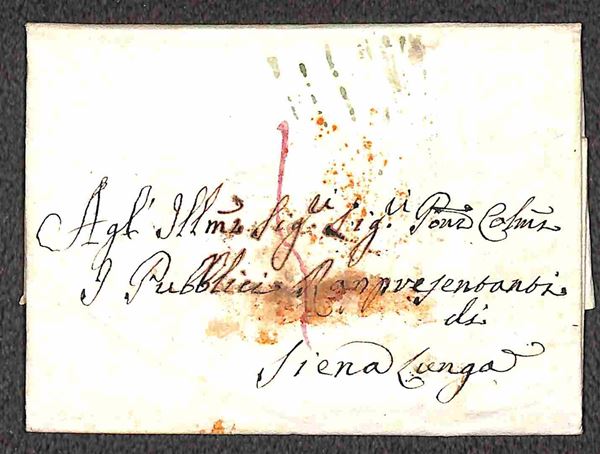 Agl' Illmi Sig.ri Sig.ri Pōni Colmi
I Pubblici Rappresentanti
di
Siena Lunga